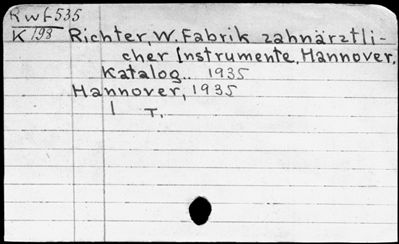 Rwf-535
K/198 Richter, W. Fabrik zahnärztli-
cher Instrumente, Hannover.
Katalog.. 1935
Hannover, 1935
| T.